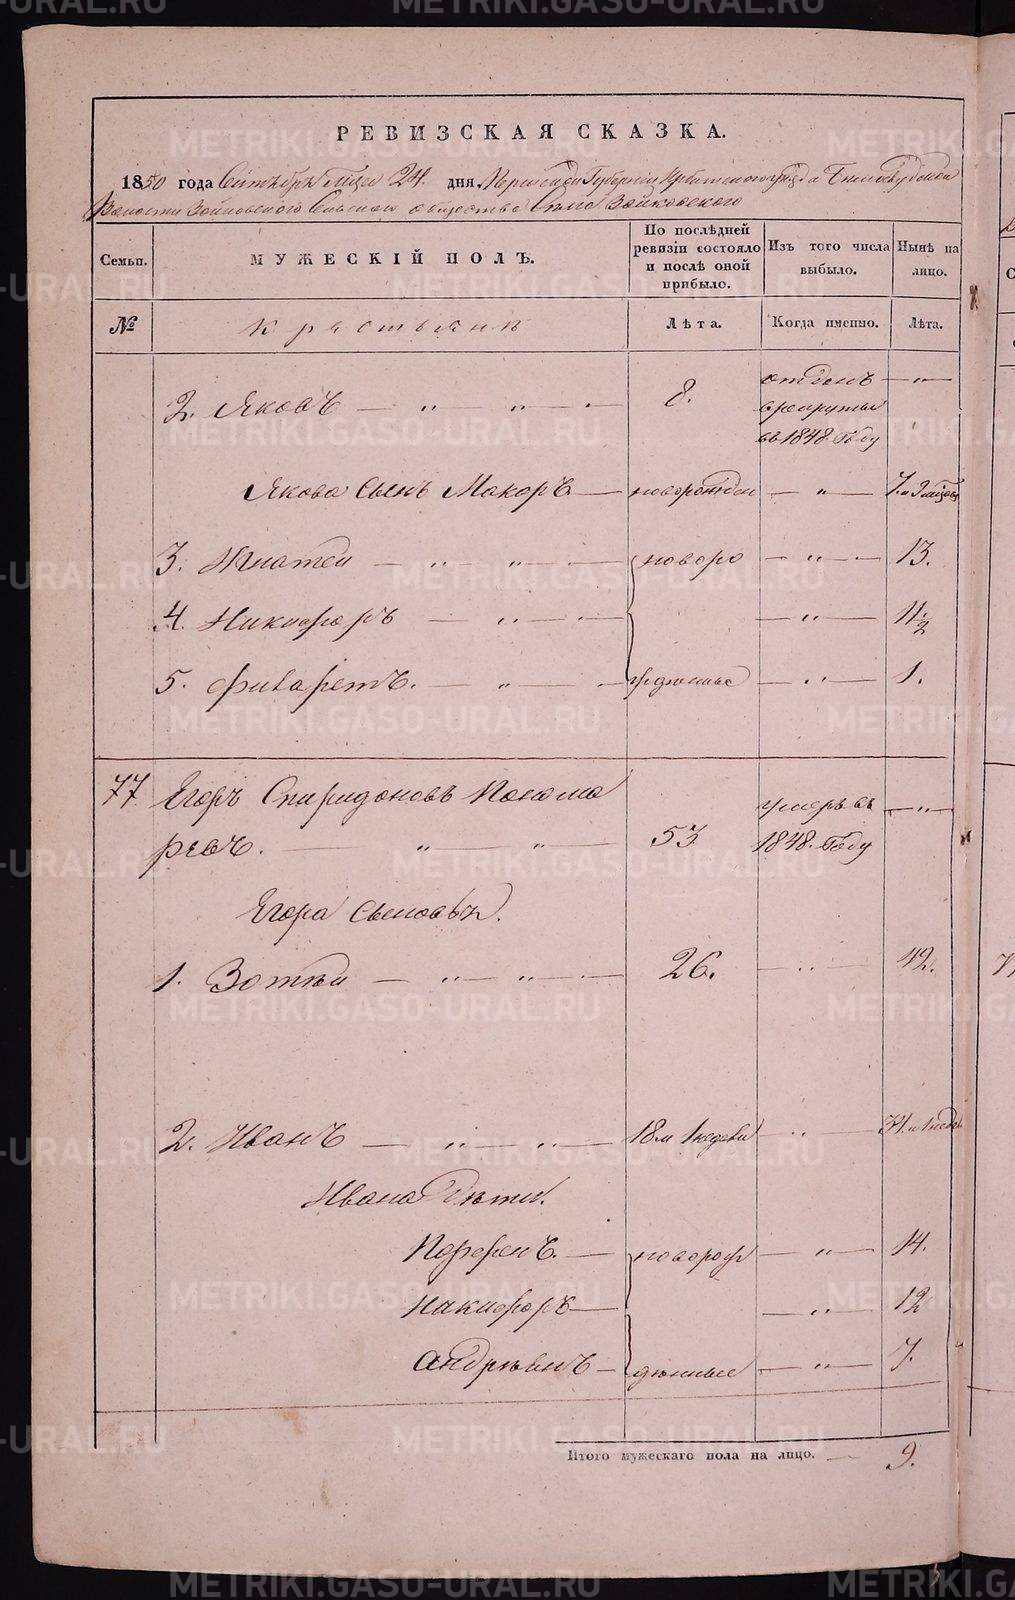 РЕВИЗСКАЯ СКАЗКА.
1850 года Сентября 24. дня Пермской Губернии Ирбитского уезда
Волости Зайковского Сельского общества Села Зайковского
Семьи.
МУЖЕСКІЙ ПОЛЪ.
По послѣдней ревизіи состояло и послѣ оной прибыло.
Изъ того числа выбыло.
Нынѣ на лицо.
№
крестьяне
Лѣта.
Когда именно.
Лѣта.
2. Яковъ — „ — „ — 8. отданъ — „ —
в рекруты
въ 1848. Году
Якова Сынъ Макаръ — новорожден — „ — 7. и
3. Игнатей — „ — „ — новоро — „ — 13.
4. Никифоръ — „ — — „ — 11 1/2
5. Филаретъ. — „ — жденные — „ — 1.
77 Егоръ Спиридоновъ Понома умеръ въ — „ —
ревъ. — „ — „ — 53 1848. Году
Егора Сыновья.
1. Зотѣй — „ — „ — 26. — „ — 42.
2. Иванъ — „ — „ — 18 и 1 недели — „ — 34. и 1 недѣл
Ивана Дѣти.
Парфенъ. — новорож — „ — 14.
Никифоръ — — „ — 12
Андреянъ — денные — „ — 7.
Итого мужескаго пола на лицо. — 9.
METRIKI.GASO-URAL.RU